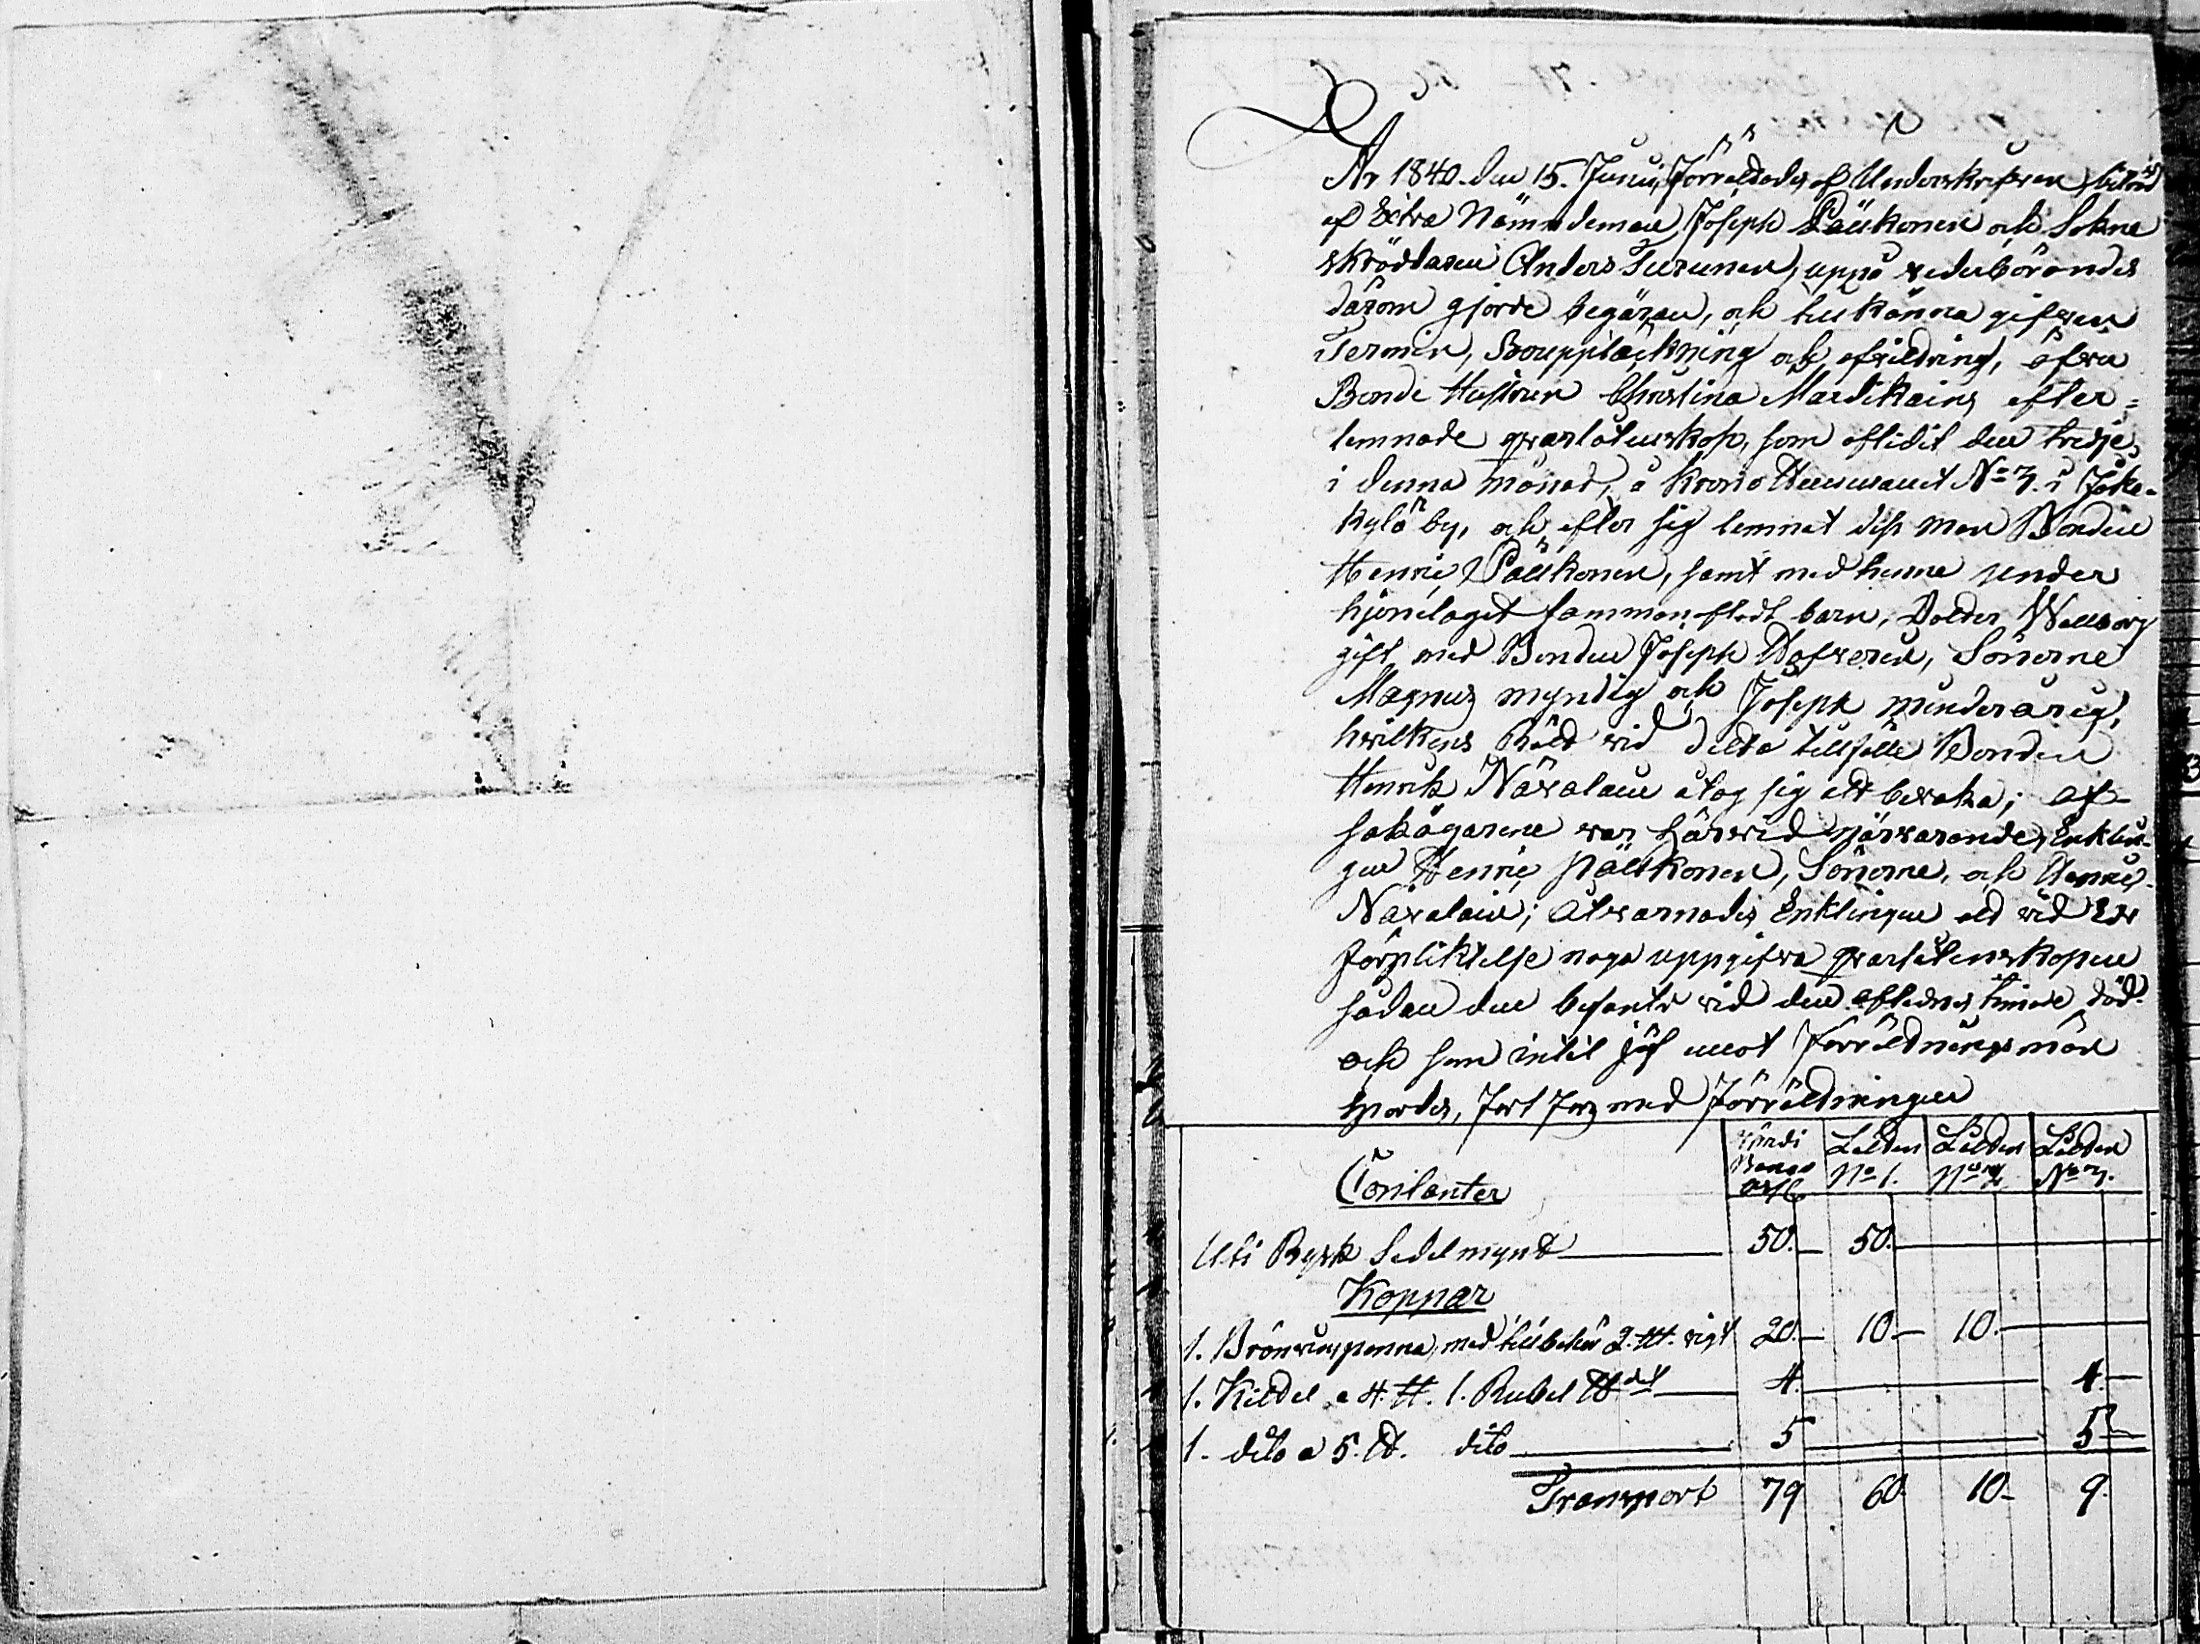 År 1840. den 15. Junii, Förrättades af Underskrifven, biträd
af Extra Nämndeman Joseph Päükonen och Sokne
skräddaren Anders Turunen, uppå vederbörandes
därom gjorde begäran, och tillkänna gifven
Termin, Bouppteckning och afvittring, öfver
Bonde Hustrun Christina Mardikains efter=
lemnade qvarlåtenskap, som aflidit den tredje
i denna månad, å Krono Hemmanet No 7. i Joke-
kylä by, och efter sig lemnat dess man Bonden
Henric Päükonen, samt med henne under
hjonelaget sammanafladt barn, Dotter Wallborg
gift med Bonden Joseph Hofveren, Sönerne
Magnus myndig och Joseph minderårig,
hvilkens Rätt vid detta tillfälle Bonden
Henrik Näralain åtog sig att bevaka; af
sakägarene var härvid närvarande, Enklin-
gen Henric Päükonen, Sönerne, och Henric
Näralain; Alvarnades Enklingen att vid Eds
förpliktelse noga uppgifva qvarlåtenskapen
sådan den befants vid den aflednes timade död
och som intet jäf emot Förrättnings män
spordes, Fort for med Förrättningen
Contanter
Lotten No 1. Lotten No 2. Lotten No 3.
Uti Rysk Sedelmynt 50. 50.
Koppar
1. Bränvinspanna, med tillbehör 2. vigt 20. 10. 10.
1. Kittel a 4. 1. Rubel 4. 4.
1. dito a 5. dito 5 5
Transport 79 60 10 9.